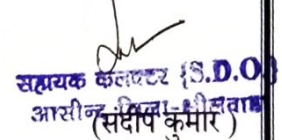 सहायक कलक्टर {S.D.O.}
आसीन्द जिला-भीलवाड़ा
(संदीप कुमार)